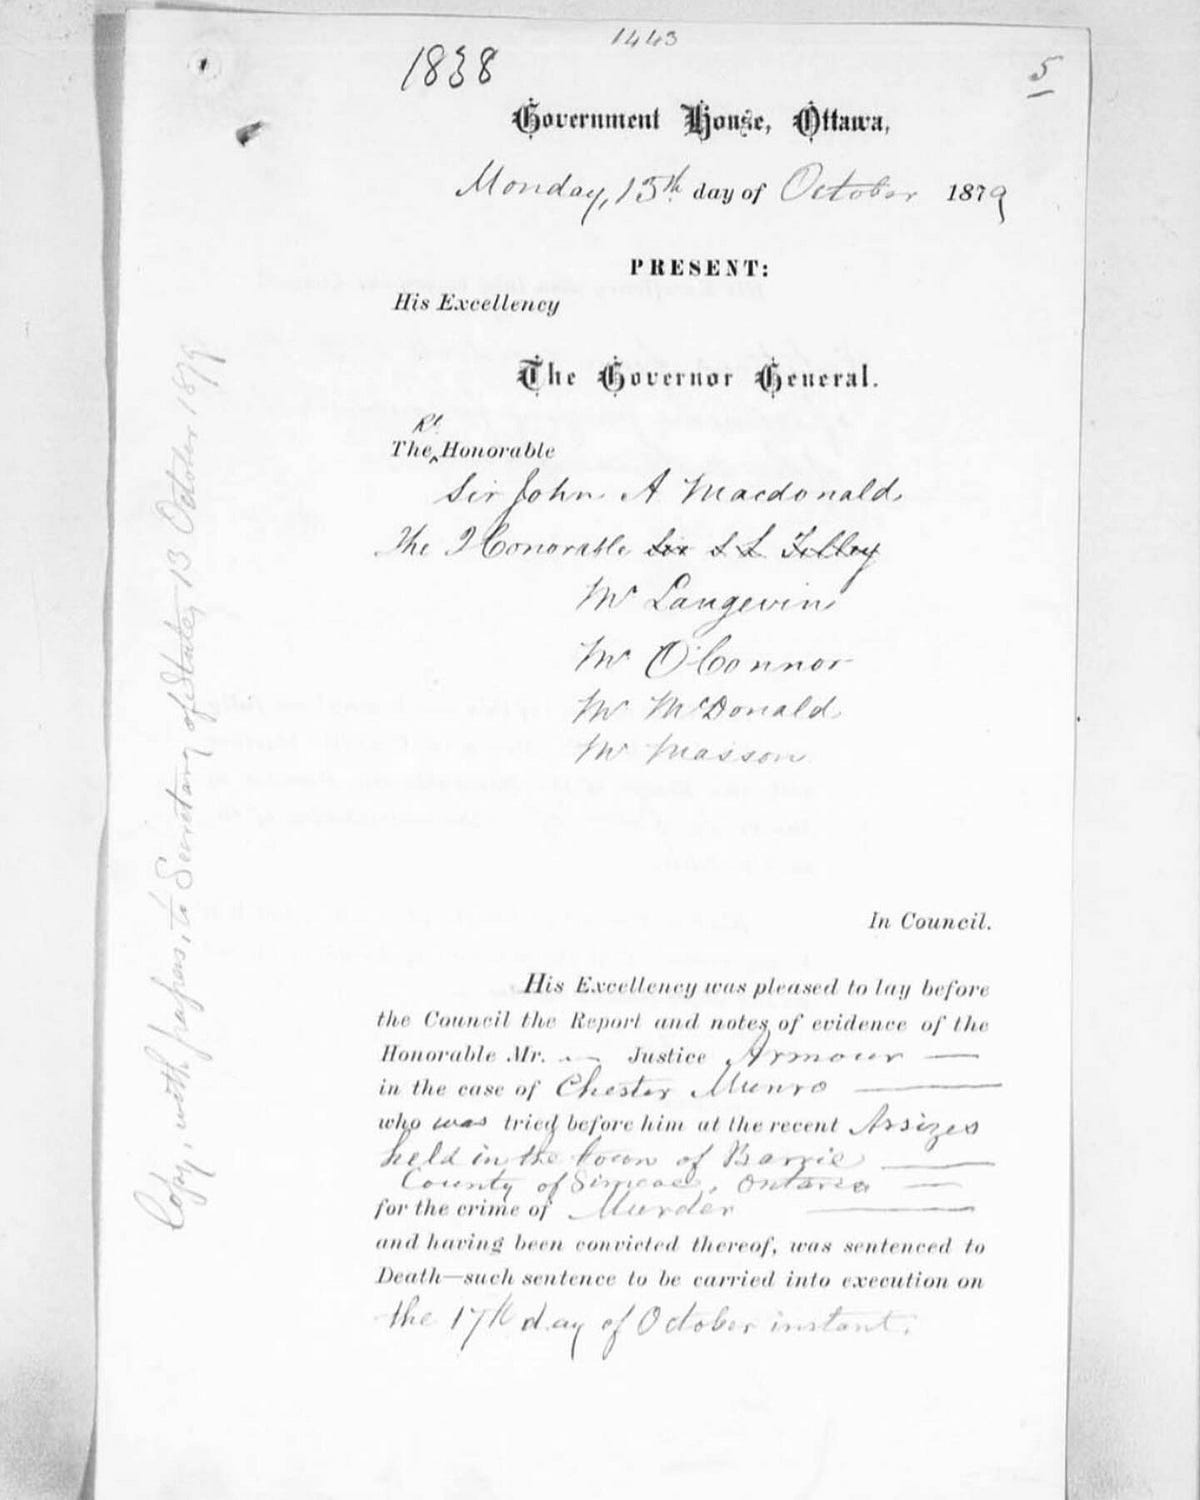 1443
1838
5
Government House, Ottawa,
Monday, 13th day of October 1879
PRESENT:
His Excellency
The Governor General.
Rt
The Honorable
Sir John A Macdonald
The Honorable Sir S L Tilley
Mr Langevin
Mr O'Connor
Mr McDonald
Mr Masson
In Council.
His Excellency was pleased to lay before
the Council the Report and notes of evidence of the
Honorable Mr. Justice Armour —
in the case of Chester Munro —
who was tried before him at the recent Assizes
held in the town of Barrie —
County of Simcoe, Ontario —
for the crime of Murder —
and having been convicted thereof, was sentenced to
Death—such sentence to be carried into execution on
the 17th day of October instant.
Copy, with papers, to Secretary of State, 13 October 1879